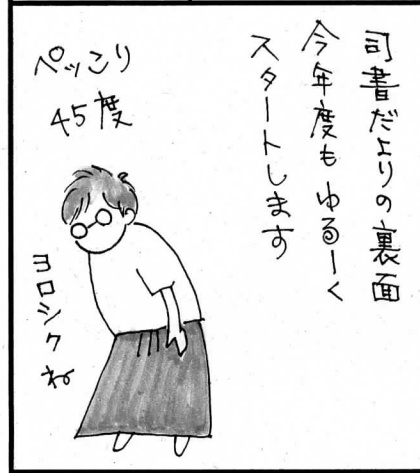 司書だよりの裏面
今年度もゆるーく
スタートします
ペッこり
45度
ヨロシクね